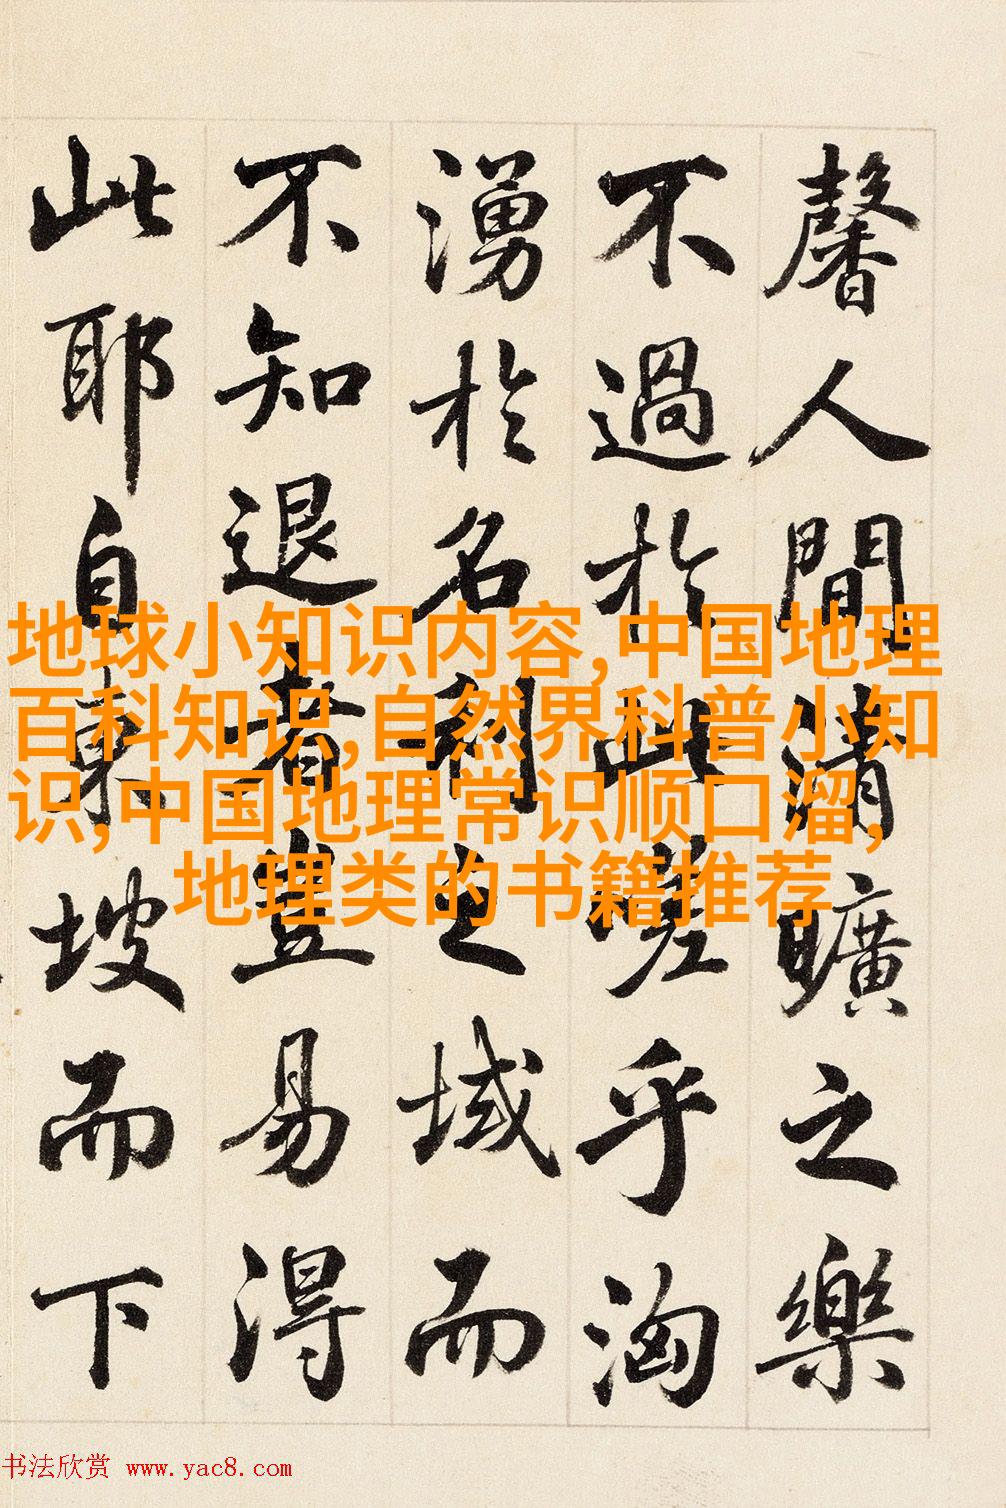 馨人間清曠之樂
不過於此嗟乎洶
湧於名利之域而
不知退者豈易得
此耶自東坡而下
地球小知识内容,中国地理
百科知识,自然界科普小知
识,中国地理常识顺口溜,
地理类的书籍推荐
书法欣赏 www.yac8.com